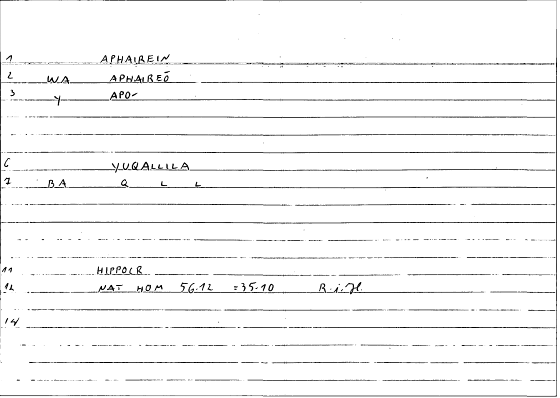 1 APHAIREIN
2 WA APHAIREŌ
3 Y APO-
6 YUQALLILA
7 BA Q L L
11 HIPPOCR
12 NAT HOM 56.12 =35.10
14